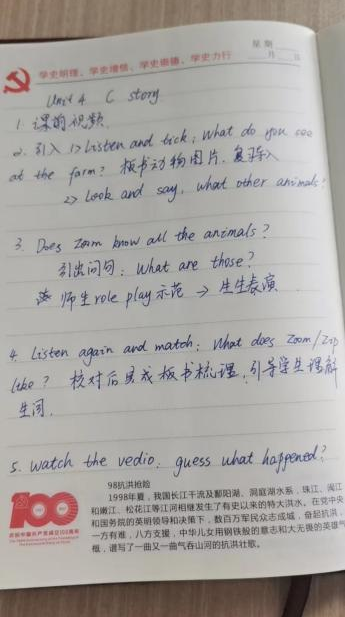 学史明理、学史增信、学史崇德、学史力行
星期
月 日
Unit 4 C story
1. 课前视频
2. 引入 1> Listen and tick, What do you see
at the farm? 板书动物图片,
2> Look and say, what other animals?
3. Does Zoom know all the animals?
引出问句: What are those?
师生role play示范 → 生生表演
4. Listen again and match: What does Zoom/Zip
like? 核对后完成板书梳理, 引导学生理解
生词.
5. watch the vedio, guess what happened?
98抗洪抢险
1998年夏，我国长江干流及鄱阳湖、洞庭湖水系，珠江、闽江
和嫩江、松花江等江河相继发生了有史以来的特大洪水。在党中央
和国务院的英明领导和决策下，数百万军民众志成城，奋起抗洪，
一方有难，八方支援，中华儿女用钢铁般的意志和大无畏的英雄气
概，谱写了一曲又一曲气吞山河的抗洪壮歌。
100
庆祝中国共产党成立100周年